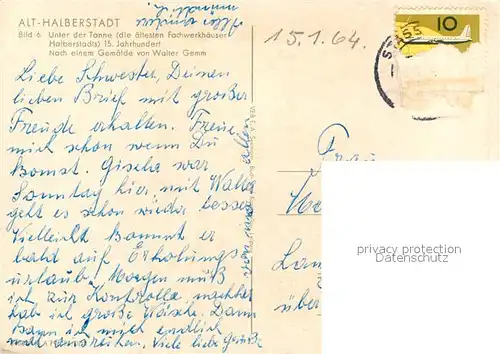 ALT-HALBERSTADT
Bild 6 Unter der Tanne (die ältesten Fachwerkhäuser
Halberstadts) 15. Jahrhundert
Nach einem Gemälde von Walter Gemm
Liebe Schwester, Deinen
lieben Brief mit großer
Freude erhalten. Freue
mich schon wenn Du
komst. Gisela war
Sonntag hier, mit Walter
geht es schon wieder besser
Vielleicht kommt er
bald auf Erholungs-
urlaub. Morgen muß
ich zur Kontrolle, nachher
hab ich große Wäsche. Dann
kann ich mich endlich
mal ausreihen. Viele liebe Grüße
von uns allen
15.1.64.
10
Frau
privacy protection
Datenschutz
über